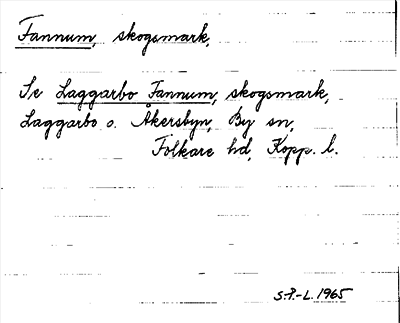 Fannum, skogsmark,
Se Laggarbo Fannum, skogsmark,
Laggarbo o. Åkersbyn, By sn,
Folkare hd, Kopp. l.
S.P.-L. 1965